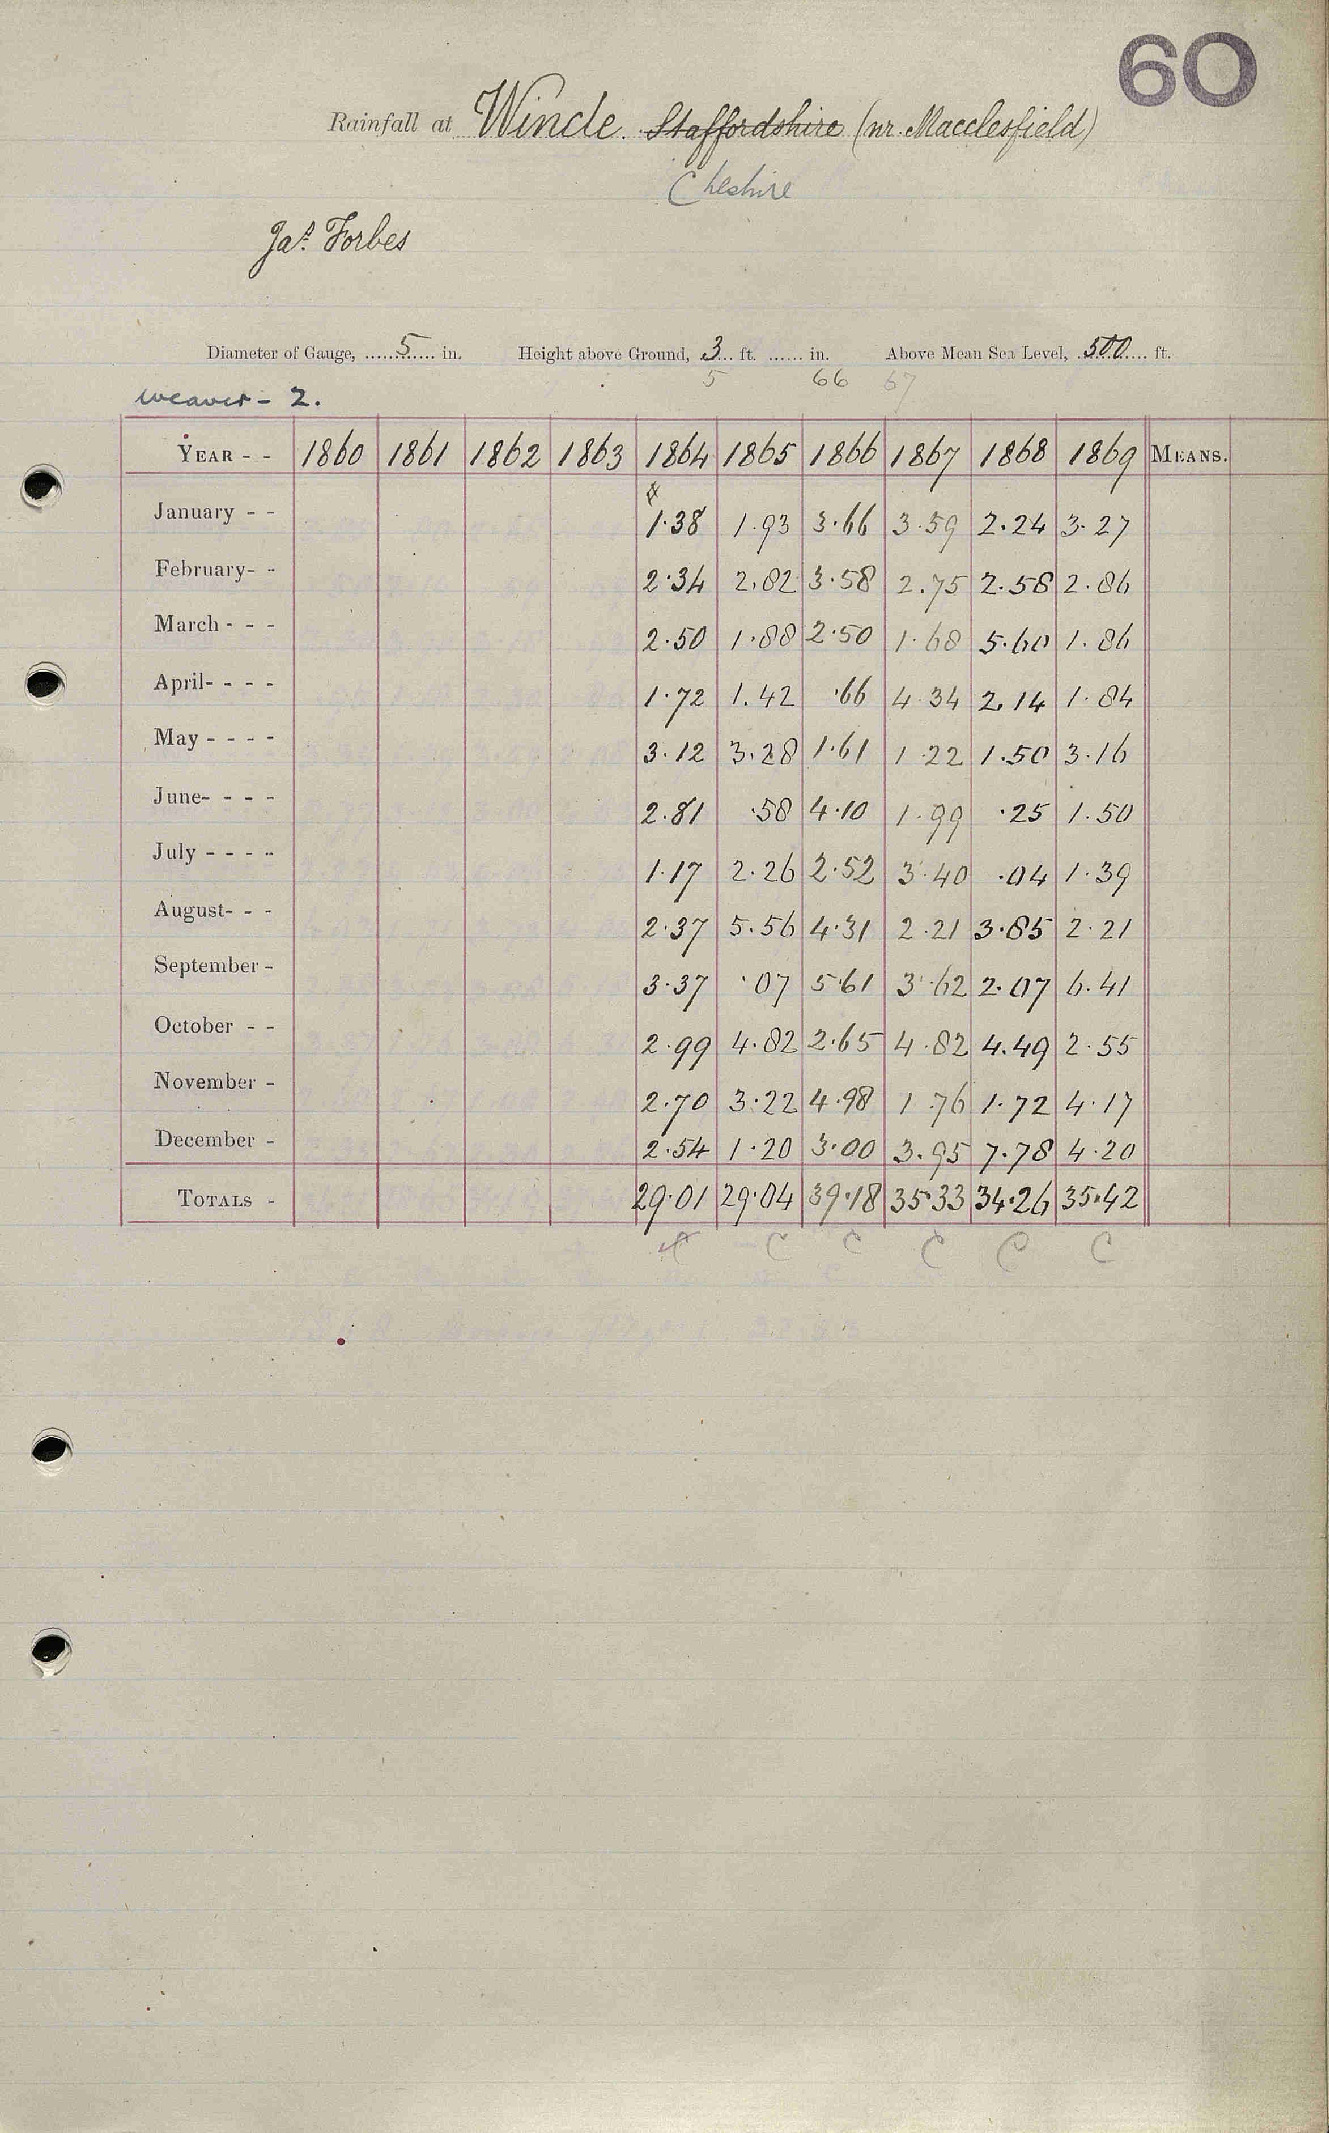 60
Rainfall at Wincle. Staffordshire (nr. Macclesfield)
Cheshire
Jas. Forbes
Diameter of Gauge, ......5...... in. Height above Ground, 3... ft. ...... in. Above Mean Sea Level, ..500.... ft.
5 66 67
Weaver - 2.
YEAR - - 1860 1861 1862 1863 1864 1865 1866 1867 1868 1869 MEANS.
January - - 1.38 1.93 3.66 3.59 2.24 3.27
February- - 2.34 2.82 3.58 2.75 2.58 2.86
March - - - 2.50 1.88 2.50 1.68 5.60 1.86
April- - - - 1.72 1.42 .66 4.34 2.14 1.84
May - - - - 3.12 3.28 1.61 1.22 1.50 3.16
June- - - - 2.81 .58 4.10 1.99 .25 1.50
July - - - - 1.17 2.26 2.52 3.40 .04 1.39
August- - - 2.37 5.56 4.31 2.21 3.85 2.21
September - 3.37 .07 5.61 3.62 2.07 6.41
October - - 2.99 4.82 2.65 4.82 4.49 2.55
November - 2.70 3.22 4.98 1.76 1.72 4.17
December - 2.54 1.20 3.00 3.95 7.78 4.20
TOTALS - 29.01 29.04 39.18 35.33 34.26 35.42
C C C C C C